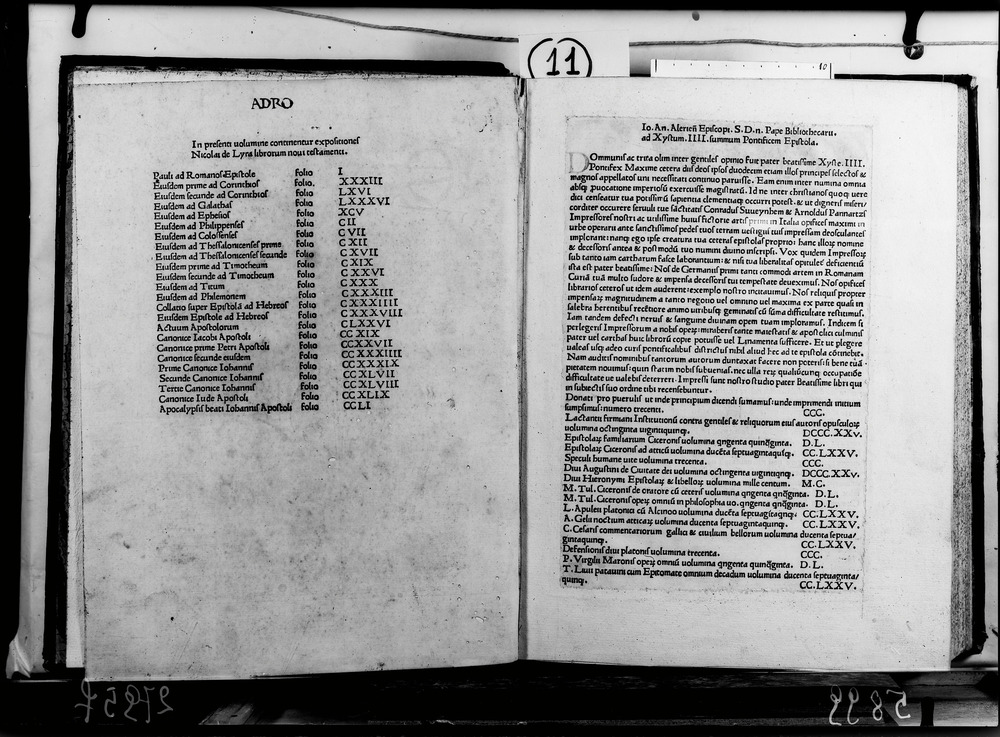 11
10
ADRO
In presenti uolumine continentur expositiones
Nicolai de Lyra librorum noui testamenti.
Pauli ad Romanos Epistole folio I
Eiusdem prime ad Corinthios folio. XXXIII
Eiusdem secunde ad Corinthios folio LXVI
Eiusdem ad Galathas folio LXXXVI
Eiusdem ad Ephesios folio XCV
Eiusdem ad Philippenses folio CII
Eiusdem ad Colossenses folio CVII
Eiusdem ad Thessalonicenses prime folio CXII
Eiusdem ad Thessalonicenses secunde folio CXVII
Eiusdem prime ad Timotheum folio CXIX
Eiusdem secunde ad Timotheum folio CXXVI
Eiusdem ad Titum folio CXXX
Eiusdem ad Philemonem folio CXXXIII
Collatio super Epistola ad Hebreos folio CXXXIIII
Eiusdem Epistole ad Hebreos folio CXXXVIII
Actuum Apostolorum folio CLXXVI
Canonice Iacobi Apostoli folio CCXIX
Canonice prime Petri Apostoli folio CCXXVII
Canonice secunde eiusdem folio CCXXXIIII
Prime Canonice Iohannis folio CCXXXIX
Secunde Canonice Iohannis folio CCXLVII
Tertie Canonice Iohannis folio CCXLVIII
Canonice Iude Apostoli folio CCXLIX
Apocalypsis beati Iohannis Apostoli folio CCLI
Io. An. Alerieñ Episcopi. S. D. n. Pape Bibliothecarii.
ad Xystum. IIII. summum Pontificem Epistola.
DOmmunis ac trita olim inter gentiles opinio fuit pater beatissime Xyste. IIII.
Pontifex Maxime cetera dii deos ipsos duodecim etiam illos principes selectos &
magnos appellatos uni necessitati continuo paruisse. Eam enim inter numina omnia
absq; puocatione imperiosū exercuisse magistratū. Id ne inter christianos quoq; uere
dici censeatur tua potissimū sapientia clementiaq; occurri potest. & ut digneris miseri/
corditer occurere seruuli tue sāctitatis Conradus Suueynhem & Arnoldus Pannartzs
Impressores nostri ac utilissime huius fictorie artis primi in Italia opifices maximi in
urbe operarii ante sanctissimos pedes tuos terram uestigii tuis impressam deosculantes
implorant: nanq; ego ipse creatura tua ceteras epistolas proprio: hanc illoꝝ nomine
& decessoris antea & postmodū tuo numini diuino inscripsi. Vox quidem Impressoꝝ
sub tanto iam cartharum fasce laborantium: & nisi tua liberalitas opitules deficientiū
ista est pater beatissime: Nos de Germanis primi tanti commodi artem in Romanam
Curiā tuā multo sudore & impensa decessoris tui tempestate deueximus. Nos opifices
librarios ceteros ut idem auderent: exemplo nostro incitauimus. Nos reliqui propter
impensaꝝ magnitudinem a tanto negotio uel omnino uel maxima ex parte quasi in
salebra herentibus rectiore animo utribusq; geminatis cū sūma difficultate restitimus.
Iam tandem defecti neruis & sanguine diuinam opem tuam imploramus. Indicem si
perlegeris Impressorum a nobis operꝝ: miraberis tante maiestati & apostolici culminis
pater uel carthas huic librorū copie potuisse uel Linamenta sufficere. Et ut plegere
ualeas usq; adeo curis pontificalibus districtus nihil aliud hec ad te epistola cōtinebit.
Nam auditis nominibus tantorum autorum duntaxat facere non poteris: si bene tuā
pietatem nouimus: quin statim nobis subuenias. nec ulla reꝝ qualiūcunq; occupatiōe
difficultate ue ualebis deterreri. Impressi sunt nostro studio pater Beatissime libri qui
in subiectis suo ordine tibi recensebuntur.
Donati pro puerulis ut inde principium dicendi sumamus: unde imprimendi initium
sumpsimus: numero trecenti. CCC.
Lactantii firmiani Institutionū contra gentiles & reliquorum eius autoris opusculoꝝ
uolumina octingenta uigintiquinq;. DCCC.XXv.
Epistolaꝝ familiarium Ciceronis uolumina qngenta quinq̄ginta. D.L.
Epistolaꝝ Ciceronis ad atticū uolumina ducēta septuagintaquisq;. CC.LXXv.
Speculi humane uite uolumina trecenta. CCC.
Diui Augustini de Ciuitate dei uolumina octingenta uigintiqnq;. DCCC.XXv.
Diui Hieronymi Epistolaꝝ & libelloꝝ uolumina mille centum. M.C.
M. Tul. Ciceronis de oratore cū ceteris uolumina qngenta qnq̄ginta. D.L.
M. Tul. Ciceronis operꝝ omniū in philosophia uo. qngenta qnq̄ginta. D.L.
L. Apuleii platonici cū Alcinoo uolumina ducēta septuagītaqnq;. CC.LXXv.
A. Gelii noctium atticaꝝ uolumina ducenta septuagintaquinq;. CC.LXXv.
C. Cesaris commentariorum gallici & ciuilium bellorum uolumina ducenta septua/
gintaquinq;. CC.LXXv.
Defensionis diui platonis uolumina trecenta. CCC.
P. Virgilii Maronis operꝝ omniū uolumina qngenta quinq̄ginta. D.L.
T. Liuii patauini cum Epitomate omnium decadum uolumina ducenta septuaginta/
quinq;. CC.LXXV.
27957
5899